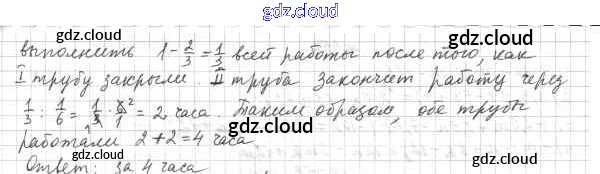 gdz.cloud
gdz.cloud
выполнить 1 - 2/3 = 1/3 всей работы после того, как
I трубу закрыли. II труба закончет работу через
gdz.cloud gdz.cloud
1/3 : 1/6 = 1/3 · 6/1 ² = 2 часа. Таким образом, обе трубы
работали 2+2=4 часа
gdz.cloud
gdz.cloud
Ответ: за 4 часа
gdz.cloud